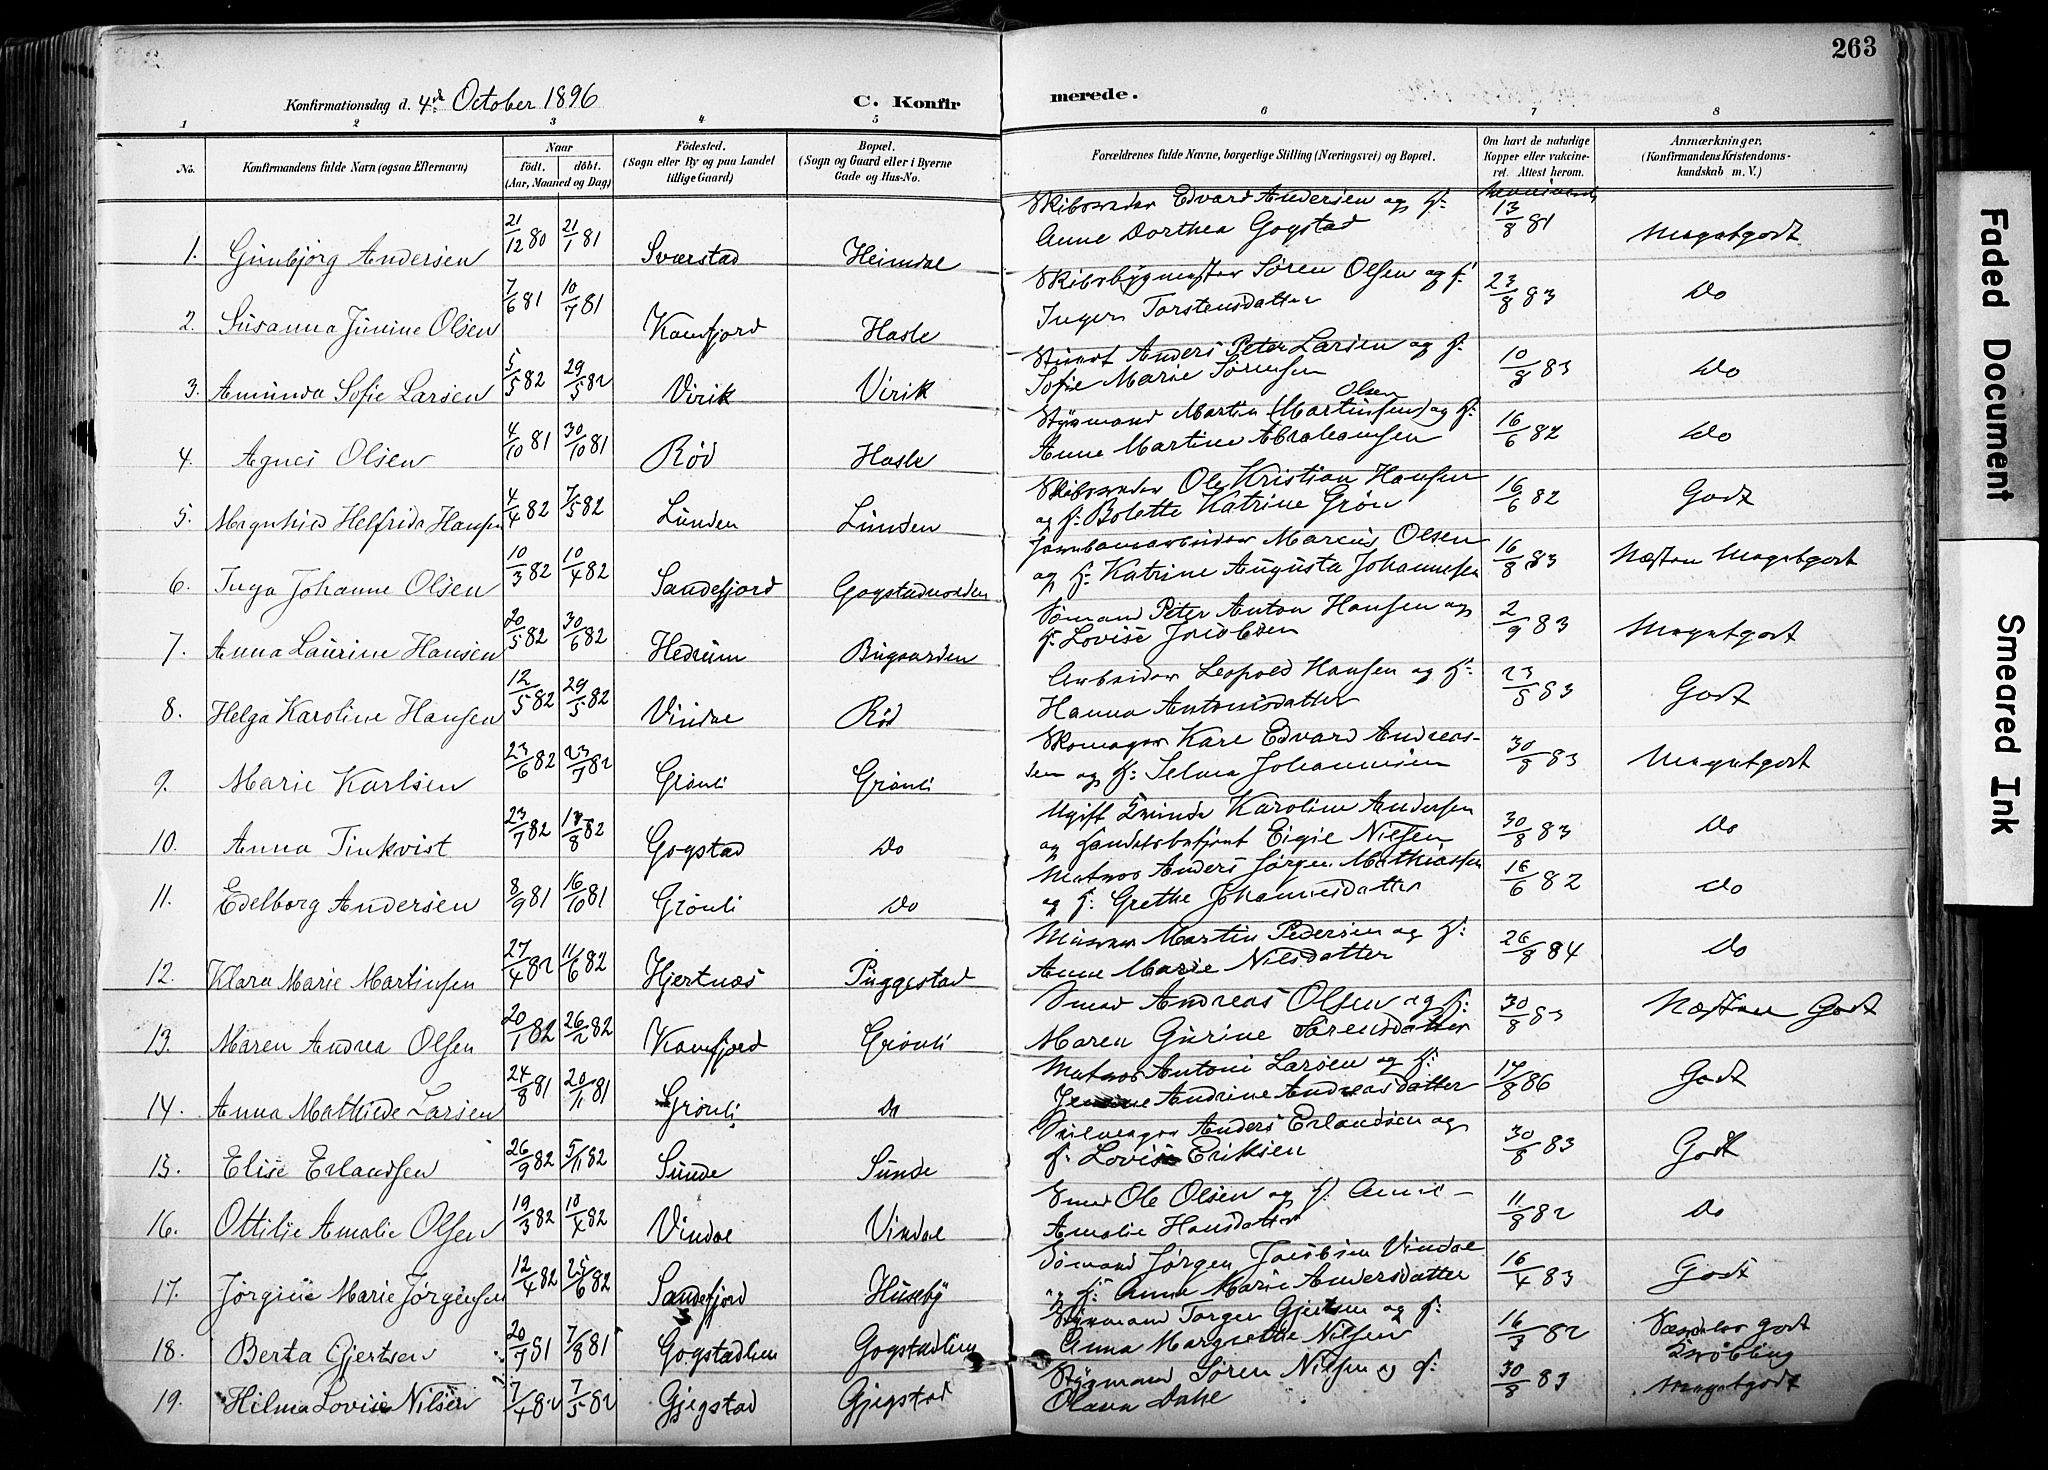 263
Konfirmationsdag d. 4de October 1896
C. Konfirmerede.
1 2 3 4 5 6 7 8
No. Konfirmandens fulde Navn (ogsaa Efternavn) Naar født. døbt. (Aar, Maaned og Dag) Fødested. (Sogn eller By og paa Landet tillige Gaard) Bopæl. (Sogn og Gaard eller i Byerne Gade og Hus-No. Forældrenes fulde Navne, borgerlige Stilling (Næringsvei) og Bopæl. Om havt de naturlige Kopper eller vakcineret. Attest herom. Anmærkninger. (Konfirmandens Kristendomskundskab m. V.)
1. Gunbjørg Andersen 21/12 80 21/1 81 Sværstad Heimdal Skibsreder Edvard Andersen og H: Anne Dorthea Gogstad 13/8 81 Megetgodt
2. Susanna Junine Olsen 7/6 81 10/7 81 Kamfjord Hasle Skibsbygmester Søren Olsen og H: Inger Torstensdatter 23/8 83 Do
3. Amunda Sofie Larsen 5/5 82 29/5 82 Virik Virik Stuert Anders Peter Larsen og H: Sofie Marie Sørensen 10/8 83 Do
4. Agnes Olsen 4/10 81 30/10 81 Rød Hasle Styrmand Martin (Martinsen) Olsen og H: Anne Martine Abrahamsen 16/6 82 Do
5. Magnhild Helfrida Hansen 4/4 82 7/5 82 Lunden Lunden Skibsreder Ole Kristian Hansen og H: Bolette Katrine Grøn 16/6 82 Godt
6. Inga Johanne Olsen 10/3 82 10/4 82 Sandefjord Gogstadnorden Jernbanearbeider Marcus Olsen og H: Katrine Augusta Johannesen 16/8 83 Næsten Megetgodt
7. Anna Laurine Hansen 20/5 82 30/6 82 Hedrum Bugaarden Sømand Peter Anton Hansen og H: Lovise Jacobsen 2/9 83 Megetgodt
8. Helga Karoline Hansen 12/5 82 29/5 82 Vindal Rød Arbeider Leopold Hansen og H: Hanna Antonisdatter 23/5 83 Godt
9. Marie Karlsen 23/6 82 23/7 82 Grønli Grønli Skomager Karl Edvard Andreassen og H: Selma Johannesen 30/8 83 Megetgodt
10. Anna Tinkvist 23/7 82 13/8 82 Gogstad Do Ugift Kvinde Karoline Andersen og Handelsbetjent Eigil Nilsen 30/8 83 Do
11. Edelborg Andersen 8/9 81 16/10 81 Grønli Do Matros Anders Jørgen Mathiassen og H: Grethe Johannesdatter 16/6 82 Do
12. Klara Marie Martinsen 27/4 82 11/6 82 Hjertnæs Puggestad Murer Martin Pedersen og H: Anne Marie Nilsdatter 26/8 84 Do
13. Maren Andrea Olsen 20/1 82 26/2 82 Kamfjord Grønli Smed Andreas Olsen og H: Maren Gurine Sørensdatter 30/8 83 Næsten Godt
14. Anna Mathilde Larsen 24/8 81 20/11 81 Grønli Do Matros Antoni Larsen og H: Andrine Andreasdatter 17/8 86 Godt
15. Elise Erlandsen 26/9 82 5/11 82 Sunde Sunde Seilmager Anders Erlandsen og H: Lovise Eriksen 30/8 83 Godt
16. Ottilie Amalie Olsen 19/3 82 10/4 82 Vindal Vindal Smed Ole Olsen og H: Anne Amalie Hansdatter 11/8 82 Do
17. Jørgine Marie Jørgensen 12/4 82 25/6 82 Sandefjord Huseby Sømand Jørgen Jacobsen Vindal og H: Anne Marie Andersdatter 16/4 83 Godt
18. Berta Gjertsen 20/7 81 7/8 81 Gogstadlien Gogstadlien Styrmand Torger Gjertsen og H: Anna Margrethe Nilsen 16/3 82 Særdeles godt
19. Hilma Lovise Nilsen 7/4 82 7/5 82 Gjegstad Gjegstad Styrmand Søren Nilsen og H: Olava Dahl 30/8 83 Megetgodt
Faded Document
Smeared Ink